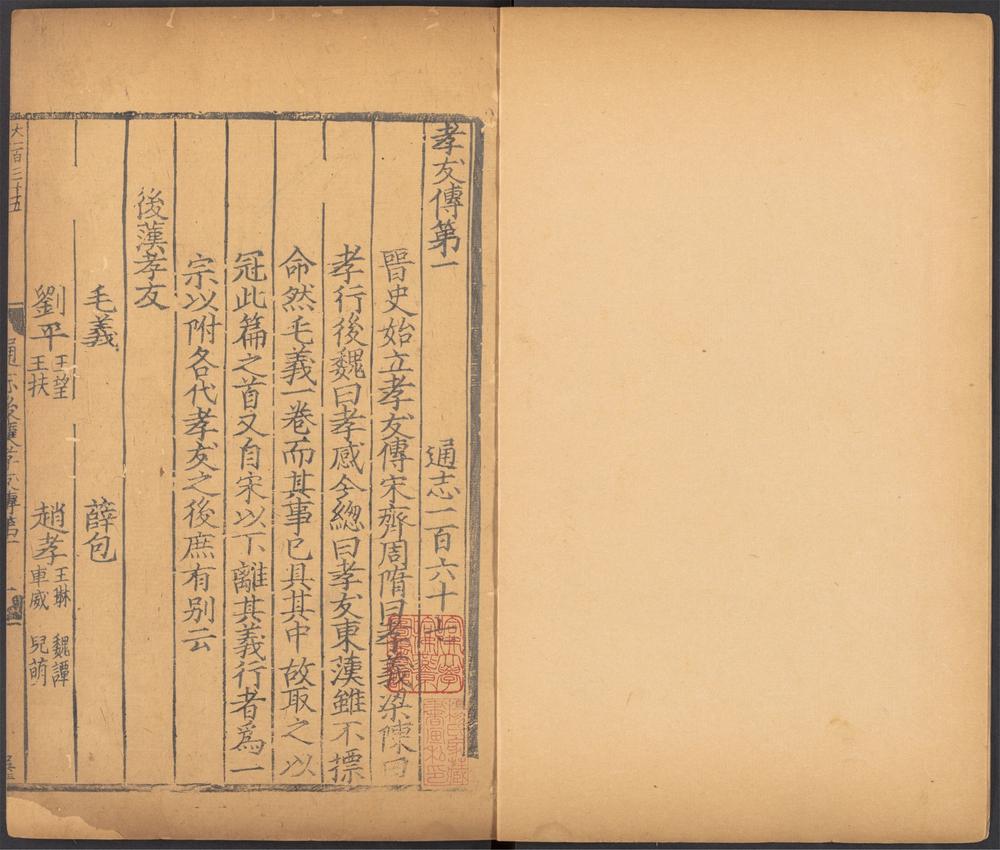 孝友傳第一
通志一百六十七
晉史始立孝友傳宋齊周隋曰孝義梁陳曰
孝行後魏曰孝感今總曰孝友東漢雖不摽
命然毛義一卷而其事已具其中故取之以
冠此篇之首又自宋以下離其義行者爲一
宗以附各代孝友之後庶有别云
後漢孝友
毛義 薛包
劉平 王望 王扶 趙孝 王琳 魏譚 車威 兒萌
大二百三十五
通志後漢孝友傳第一